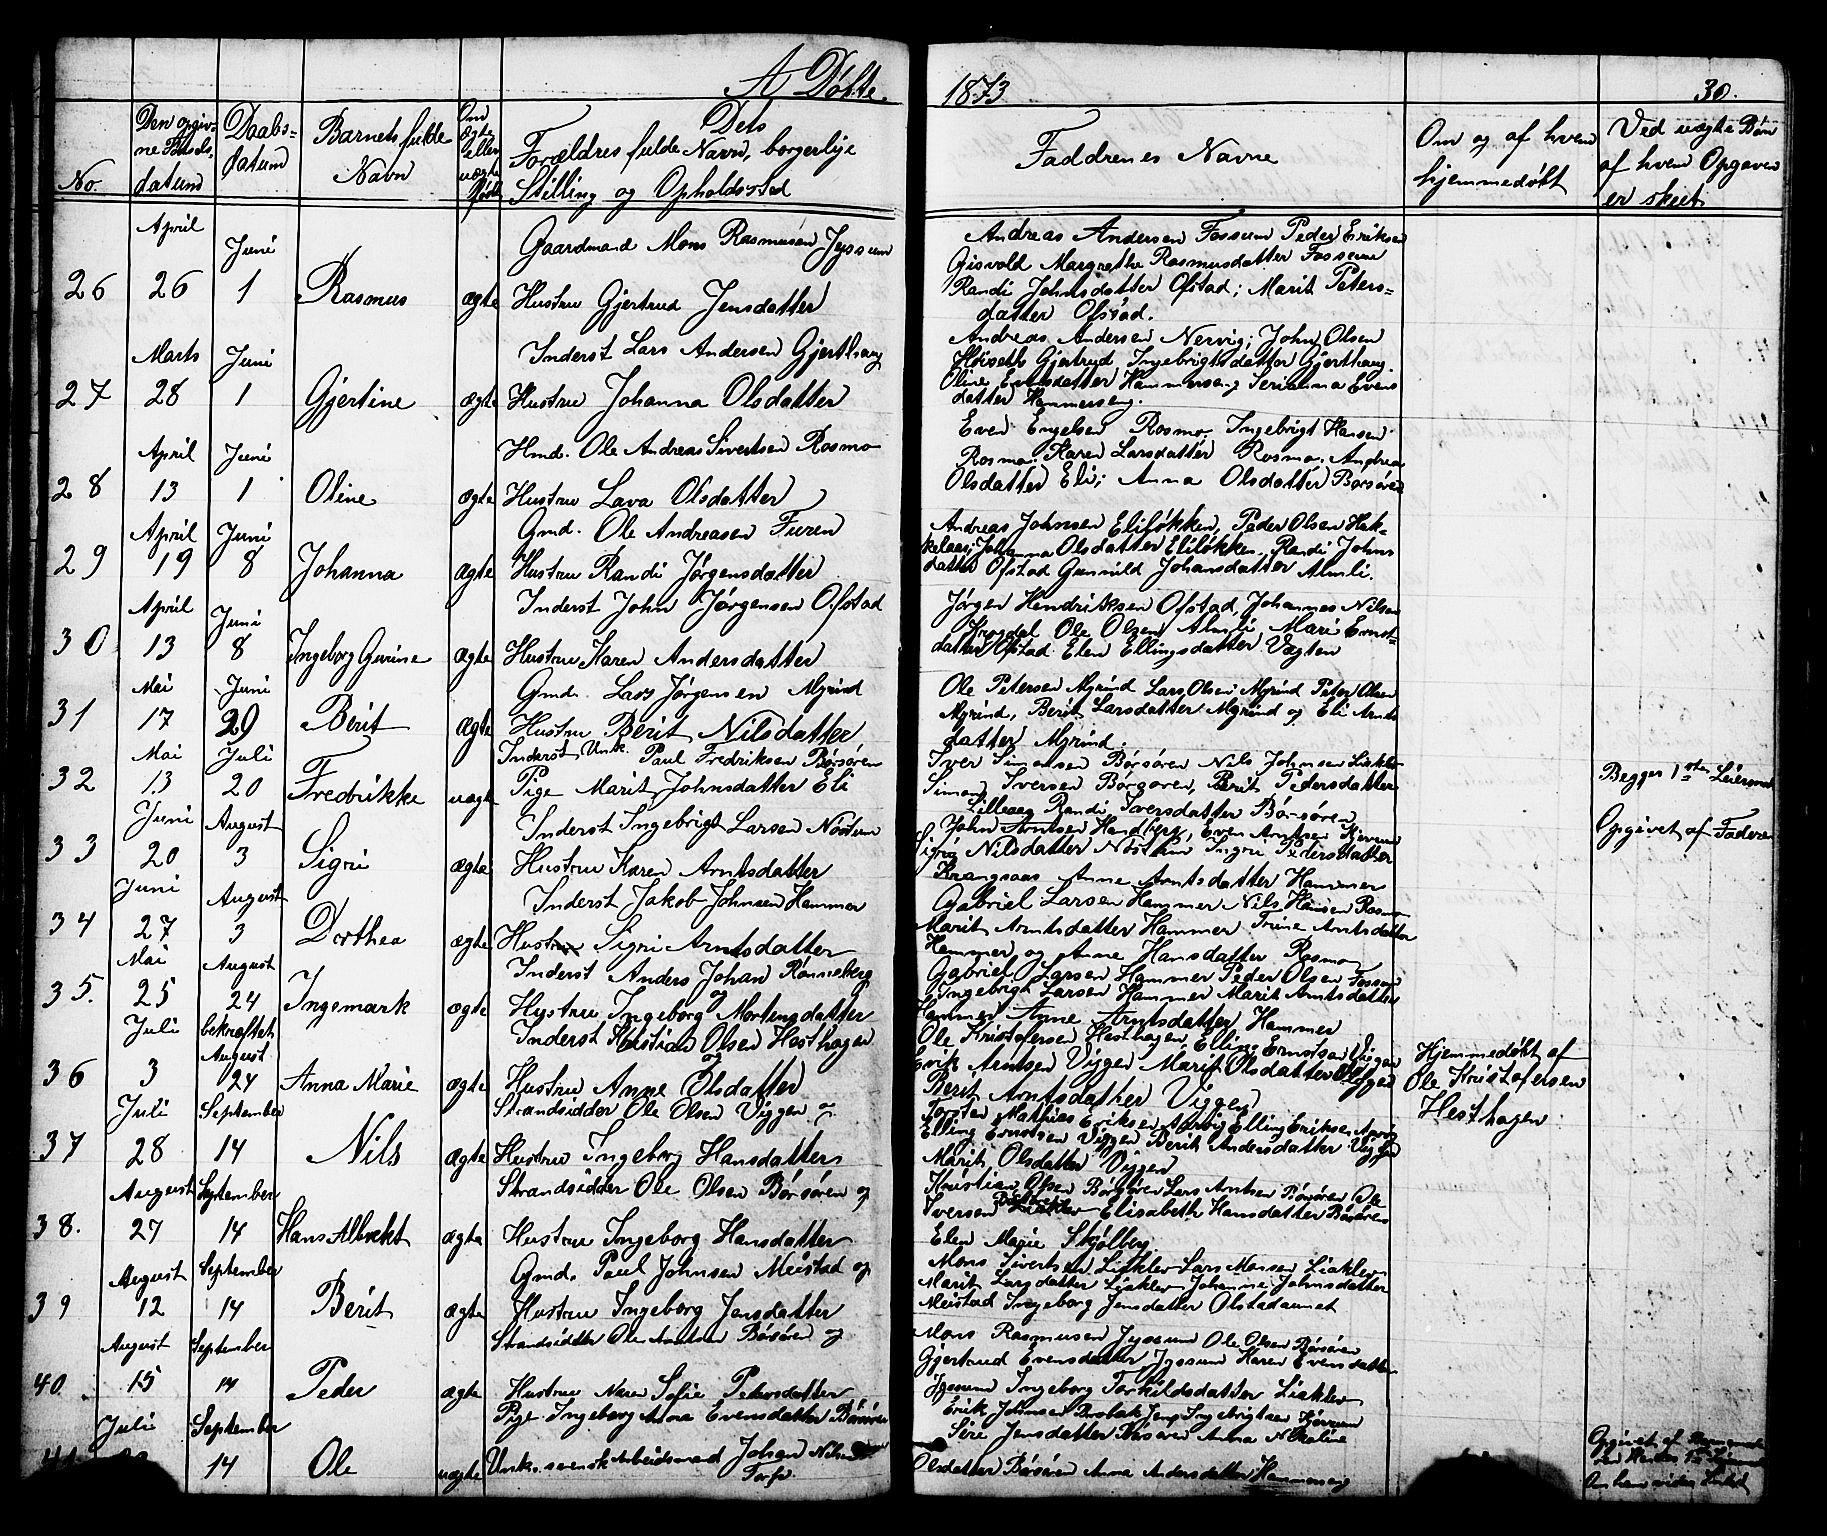 A Døbte.
1873
30.
No
Den opgivne Fødselsdatum
Daabsdatum
Barnets fulde Navn
Om ægte eller uægte født
Dets Forældres fulde Navn, borgerlige Stilling og Opholdssted
Faddrenes Navne
Om og af hvem hjemmedøbt
Ved uægte Børn af hvem Opgaven er skeet
April Juni Gaardmand Mons Rasmusen Jyssum
26 26 1 Rasmus ægte Hustru Gjertrud Jensdatter
Andreas Andersen Fossum Peder Eriksen
Gisvold Margrethe Rasmusdatter Fossum
Randi Johnsdatter Ofstad; Marit Peters-
datter Ofstad.
Marts Juni Inderst Lars Andersen Gjerthaug
27 28 1 Gjertine ægte Hustru Johanna Olsdatter
Andreas Andersen Nervig; John Olsen
Høiseth Gjertrud Ingebrigtsdatter Gjerthaug.
Oline Erntsdatter Hammerseng Serianna Evens
datter Hammerseng.
April Juni Hmd. Ole Andreas Sivertsen Rosmo
28 13 1 Oline ægte Hustru Lava Olsdatter
Even Engelsen Rosmo, Ingebrigt Hansen
Rosmo. Karen Larsdatter Rosmo. Andrea
Olsdatter Eli; Anna Olsdatter Børsøren
April Juni Gmd. Ole Andreasen Furen
29 19 8 Johanna ægte Hustru Randi Jørgensdatter
Andreas Johnsen Eliløkken, Peder Olsen Hak-
kelaas; Johanna Olsdatter Eliløkken, Randi Johns
datter Ofstad Gunnild Johansdatter Almli.
April Juni Inderst John Jørgensen Ofstad
30 13 8 Ingeborg Gurine ægte Hustru Karen Andersdatter
Jørgen Hendriksen Ofstad, Johannes Nilsen
Krogdal Ole Olsen Almli, Mari Ernst-
datter Ofstad Elen Ellingsdatter Vægten
Mai Juni Gmd. Lars Jørgensen Mgrind
31 17 29 Berit ægte Hustru Berit Nilsdatter
Ole Petersen Mgrind Lars Olsen Mgrind Peter Olsen
Mgrind, Berit Larsdatter Mgrind og Eli Arnts
datter Mgrind.
Mai Juli Inderst Unk. Paul Fredriksen Børsøren
32 13 20 Fredrikke uægte Pige Marit Johnsdatter Eli
Iver Simonsen Børsøren Nils Johnsen Liaklev
Simon Iversen Børsøren, Berit Pedersdatter
Lilleaas Randi Iversdatter Børsøren
Begges 1ste Leiermaal
Opgivet af Faderen
Juni August Inderst Ingebrigt Larsen Nøstum
33 20 3 Sigri ægte Hustru Karen Arntsdatter
John Arntsen Handberg, Even Arntsen Kjøvum
Sigrig Nilsdatter Nøstum Ingri Pedersdatter
Krangsaas Anne Arntsdatter Hammer
Juni August Inderst Jakob Johnsen Hammer
34 27 3 Dorthea ægte Hustru Sigri Arntsdatter
Gabriel Larsen Hammer Nils Hansen Rosmo
Marit Arntsdatter Hammer Trine Arntsdatter
Hammer og Anne Hansdatter Rosmo
Mai August Inderst Anders Johan Rønneberg og
35. 25 24 Ingemark ægte Hustru Ingeborg Mortensdatter
Gabriel Larsen Hammer Peder Olsen Fossum
Ingebrigt Larsen Hammer Marit Arntsdatter
Hammer Anne Arntsdatter Hammer
Juli bekræftet August Inderst Kristian Olsen Hesthagen og
36 3 24 Anna Marie ægte Hustru Anne Olsdatter
Ole Kristofersen Hesthagen, Elling Ernstsen Viggen
Erik Arntsen Viggen Marit Olsdatter Viggen
Berit Arntsdatter Viggen
Hjemmedøbt af
Ole Kristofersen
Hesthagen
Juli September Strandsidder Ole Olsen Viggen og
37 28 14 Nils ægte Hustru Ingeborg Hansdatter
Torsten Mathias Eriksen Aarvig Elling Eriksen Aarvig
Elling Ernstsen Viggen Berit Andersdatter Viggen
Marit Olsdatter Viggen
August September Strandsidder Ole Olsen Børsøren og
38. 27 14 Hans Albrekt ægte Hustru Ingeborg Hansdatter
Kristian Olsen Børsøren Lars Arntsen Børsøren Ole
Iversen Børsøren Elisabeth Hansdatter Børsøren
Elen Marie Skjølberg
August September Gmd. Paul Johnsen Meistad og
39 12 14 Berit ægte Hustru Ingeborg Jensdatter
Mons Sivertsen Liaklev Lars Monsen Liaklev
Marit Larsdatter Liaklev Johanna Johnsdatter
Meistad Ingeborg Jensdatter Olstadaunet
August September Strandsidder Ole Arntsen Børsøren og
40 15 14 Peder ægte Hustru Sofie Petersdatter
Mons Rasmusen Jyssum Ole Olsen Børsøren
Gjertrud Evensdatter Jyssum Karen Evensdatter
Jyssum Ingeborg Torkildsdatter Liaklev
Juli September Pige Ingeborg Anna Evensdatter Børsøren
41 14 Ole uægte Unk. svensk Arbeidsmand Johan Nilsen
Erik Johnsen Jens Ingebrigtsen Kjøvum
Siri Jensdatter Anna Nikoline
Olsdatter Børsøren Anna Andersdatter Hammerseng
Opgivet af